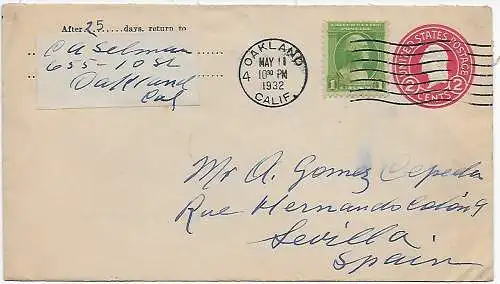 After 25 days, return to
C A Selman
655-10 St
Oakland
Cal
OAKLAND
4
MAY 11
10 30 PM
1932
CALIF.
1
UNITED STATES POSTAGE
2 2
CENTS
Mr A. Gomez Cepeda
Rue Hernando Colón 9
Sevilla
Spain